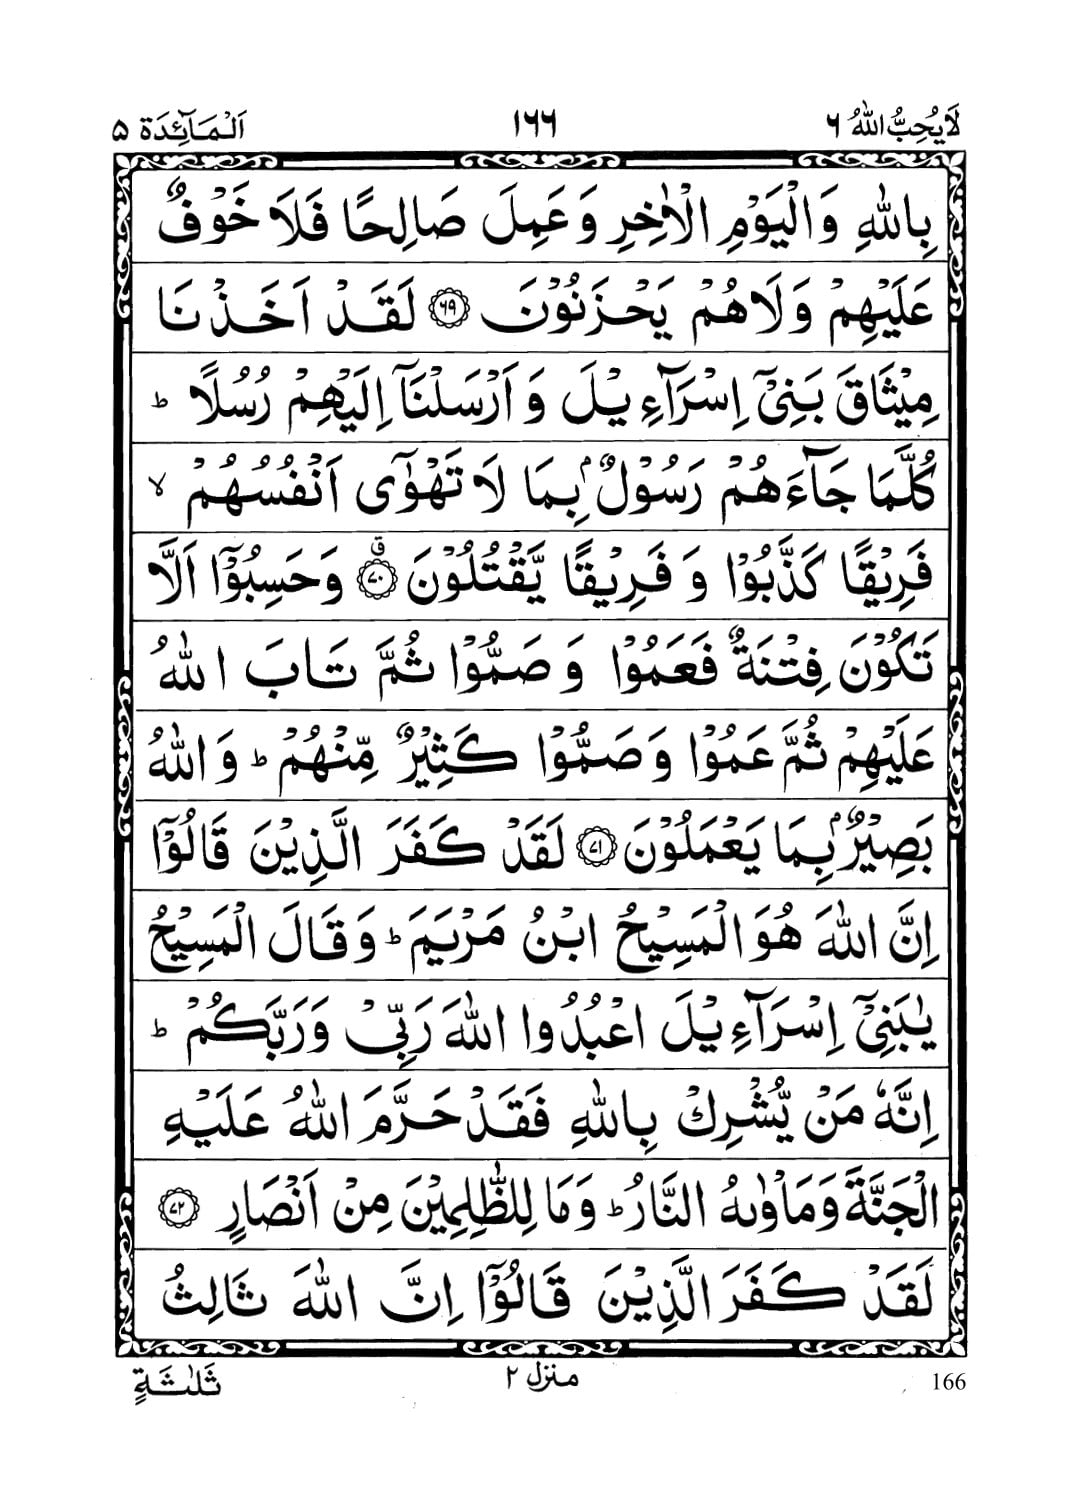 لَا يُحِبُّ اللّٰهُ ٦
١٦٦
اَلْمَآئِدَة ٥
بِاللّٰهِ وَالْيَوْمِ الْاٰخِرِ وَعَمِلَ صَالِحًا فَلَا خَوْفٌ
عَلَيْهِمْ وَلَا هُمْ يَحْزَنُوْنَ ۝٦٩ لَقَدْ اَخَذْنَا
مِيْثَاقَ بَنِيْٓ اِسْرَآءِيْلَ وَاَرْسَلْنَآ اِلَيْهِمْ رُسُلًا ؕ
كُلَّمَا جَآءَهُمْ رَسُوْلٌۢ بِمَا لَا تَهْوٰٓى اَنْفُسُهُمْ ۙ
فَرِيْقًا كَذَّبُوْا وَفَرِيْقًا يَّقْتُلُوْنَ ۝٧٠ ق وَحَسِبُوْٓا اَلَّا
تَكُوْنَ فِتْنَةٌ فَعَمُوْا وَصَمُّوْا ثُمَّ تَابَ اللّٰهُ
عَلَيْهِمْ ثُمَّ عَمُوْا وَصَمُّوْا كَثِيْرٌ مِّنْهُمْ ؕ وَاللّٰهُ
بَصِيْرٌۢ بِمَا يَعْمَلُوْنَ ۝٧١ لَقَدْ كَفَرَ الَّذِيْنَ قَالُوْٓا
اِنَّ اللّٰهَ هُوَ الْمَسِيْحُ ابْنُ مَرْيَمَ ؕ وَقَالَ الْمَسِيْحُ
يٰبَنِيْٓ اِسْرَآءِيْلَ اعْبُدُوا اللّٰهَ رَبِّيْ وَرَبَّكُمْ ؕ
اِنَّهٗ مَنْ يُّشْرِكْ بِاللّٰهِ فَقَدْ حَرَّمَ اللّٰهُ عَلَيْهِ
الْجَنَّةَ وَمَاْوٰىهُ النَّارُ ؕ وَمَا لِلظّٰلِمِيْنَ مِنْ اَنْصَارٍ ۝٧٢
لَقَدْ كَفَرَ الَّذِيْنَ قَالُوْٓا اِنَّ اللّٰهَ ثَالِثُ
166
منزل ٢
ثَلٰثَةٍ